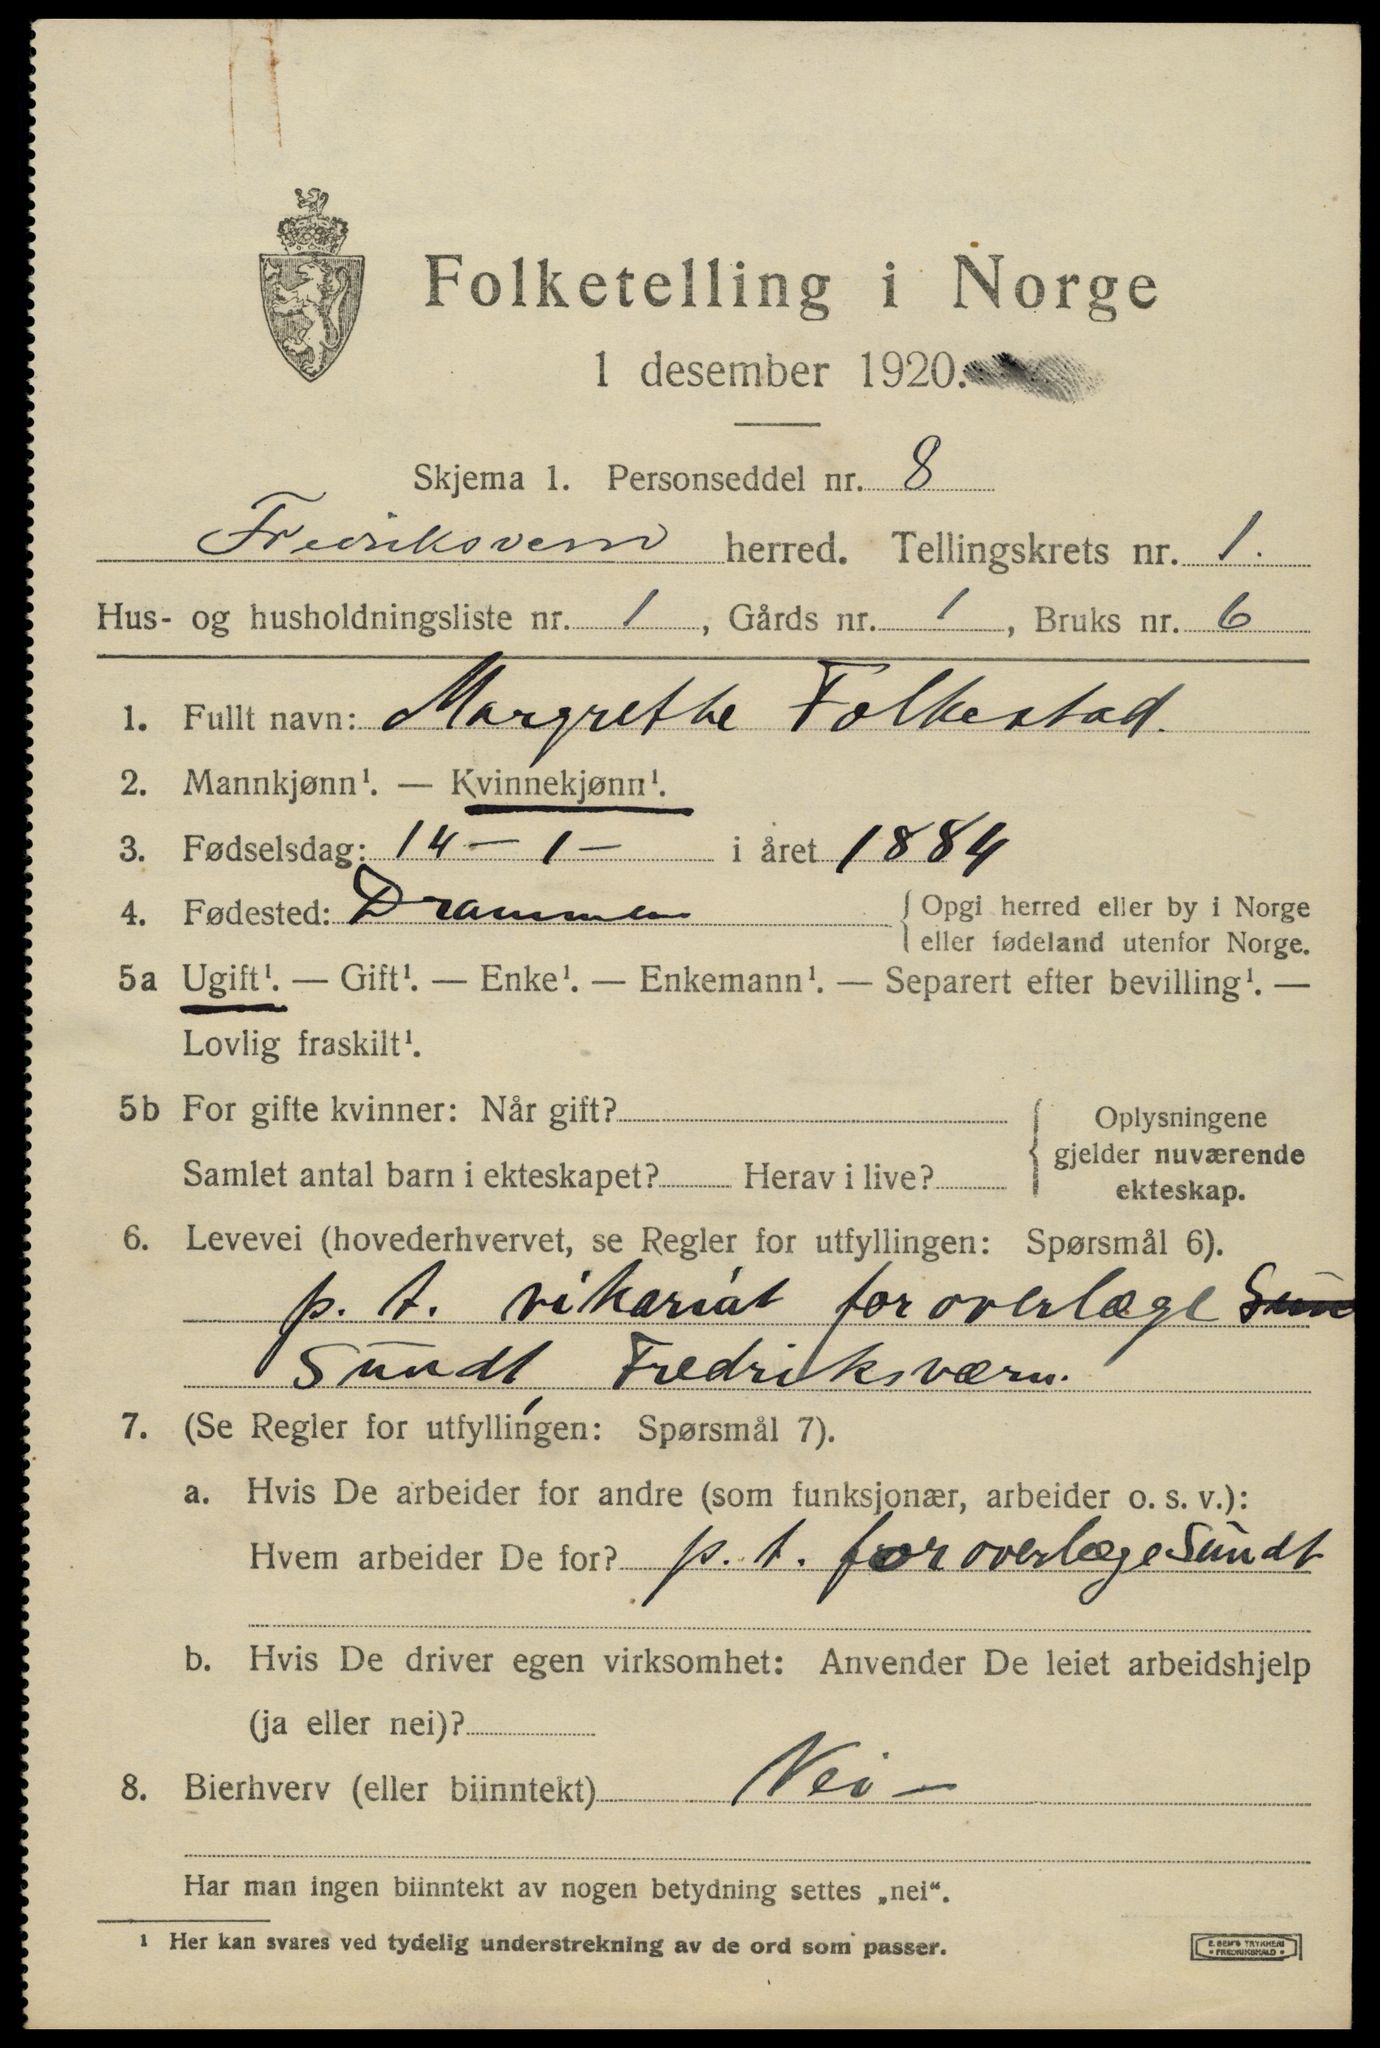 Folketelling i Norge
1 desember 1920.
Skjema 1. Personseddel nr. 8
Fredriksvern herred. Tellingskrets nr. 1.
Hus- og husholdningsliste nr. 1, Gårds nr. 1, Bruks nr. 6
1. Fullt navn: Margrethe Folkestad.
2. Mannkjønn¹. — Kvinnekjønn¹.
3. Fødselsdag: 14 – 1 – i året 1884
4. Fødested: Drammen { Opgi herred eller by i Norge
eller fødeland utenfor Norge.
5a Ugift¹. — Gift¹. — Enke¹. — Enkemann¹. — Separert efter bevilling¹. —
Lovlig fraskilt¹.
5b For gifte kvinner: Når gift? { Oplysningene
gjelder nuværende
Samlet antal barn i ekteskapet? Herav i live?
ekteskap.
6. Levevei (hovederhvervet, se Regler for utfyllingen: Spørsmål 6).
p. t. vikariat for overlæge Sun
Sundt, Fredriksværn.
7. (Se Regler for utfyllingen: Spørsmål 7).
a. Hvis De arbeider for andre (som funksjonær, arbeider o. s. v.):
Hvem arbeider De for? p. t. for overlæge Sundt
b. Hvis De driver egen virksomhet: Anvender De leiet arbeidshjelp
(ja eller nei)?
8. Bierhverv (eller biinntekt) Nei –
Har man ingen biinntekt av nogen betydning settes „nei“.
¹ Her kan svares ved tydelig understrekning av de ord som passer.
E. SEM'S TRYKKERI
• FREDRIKSHALD •